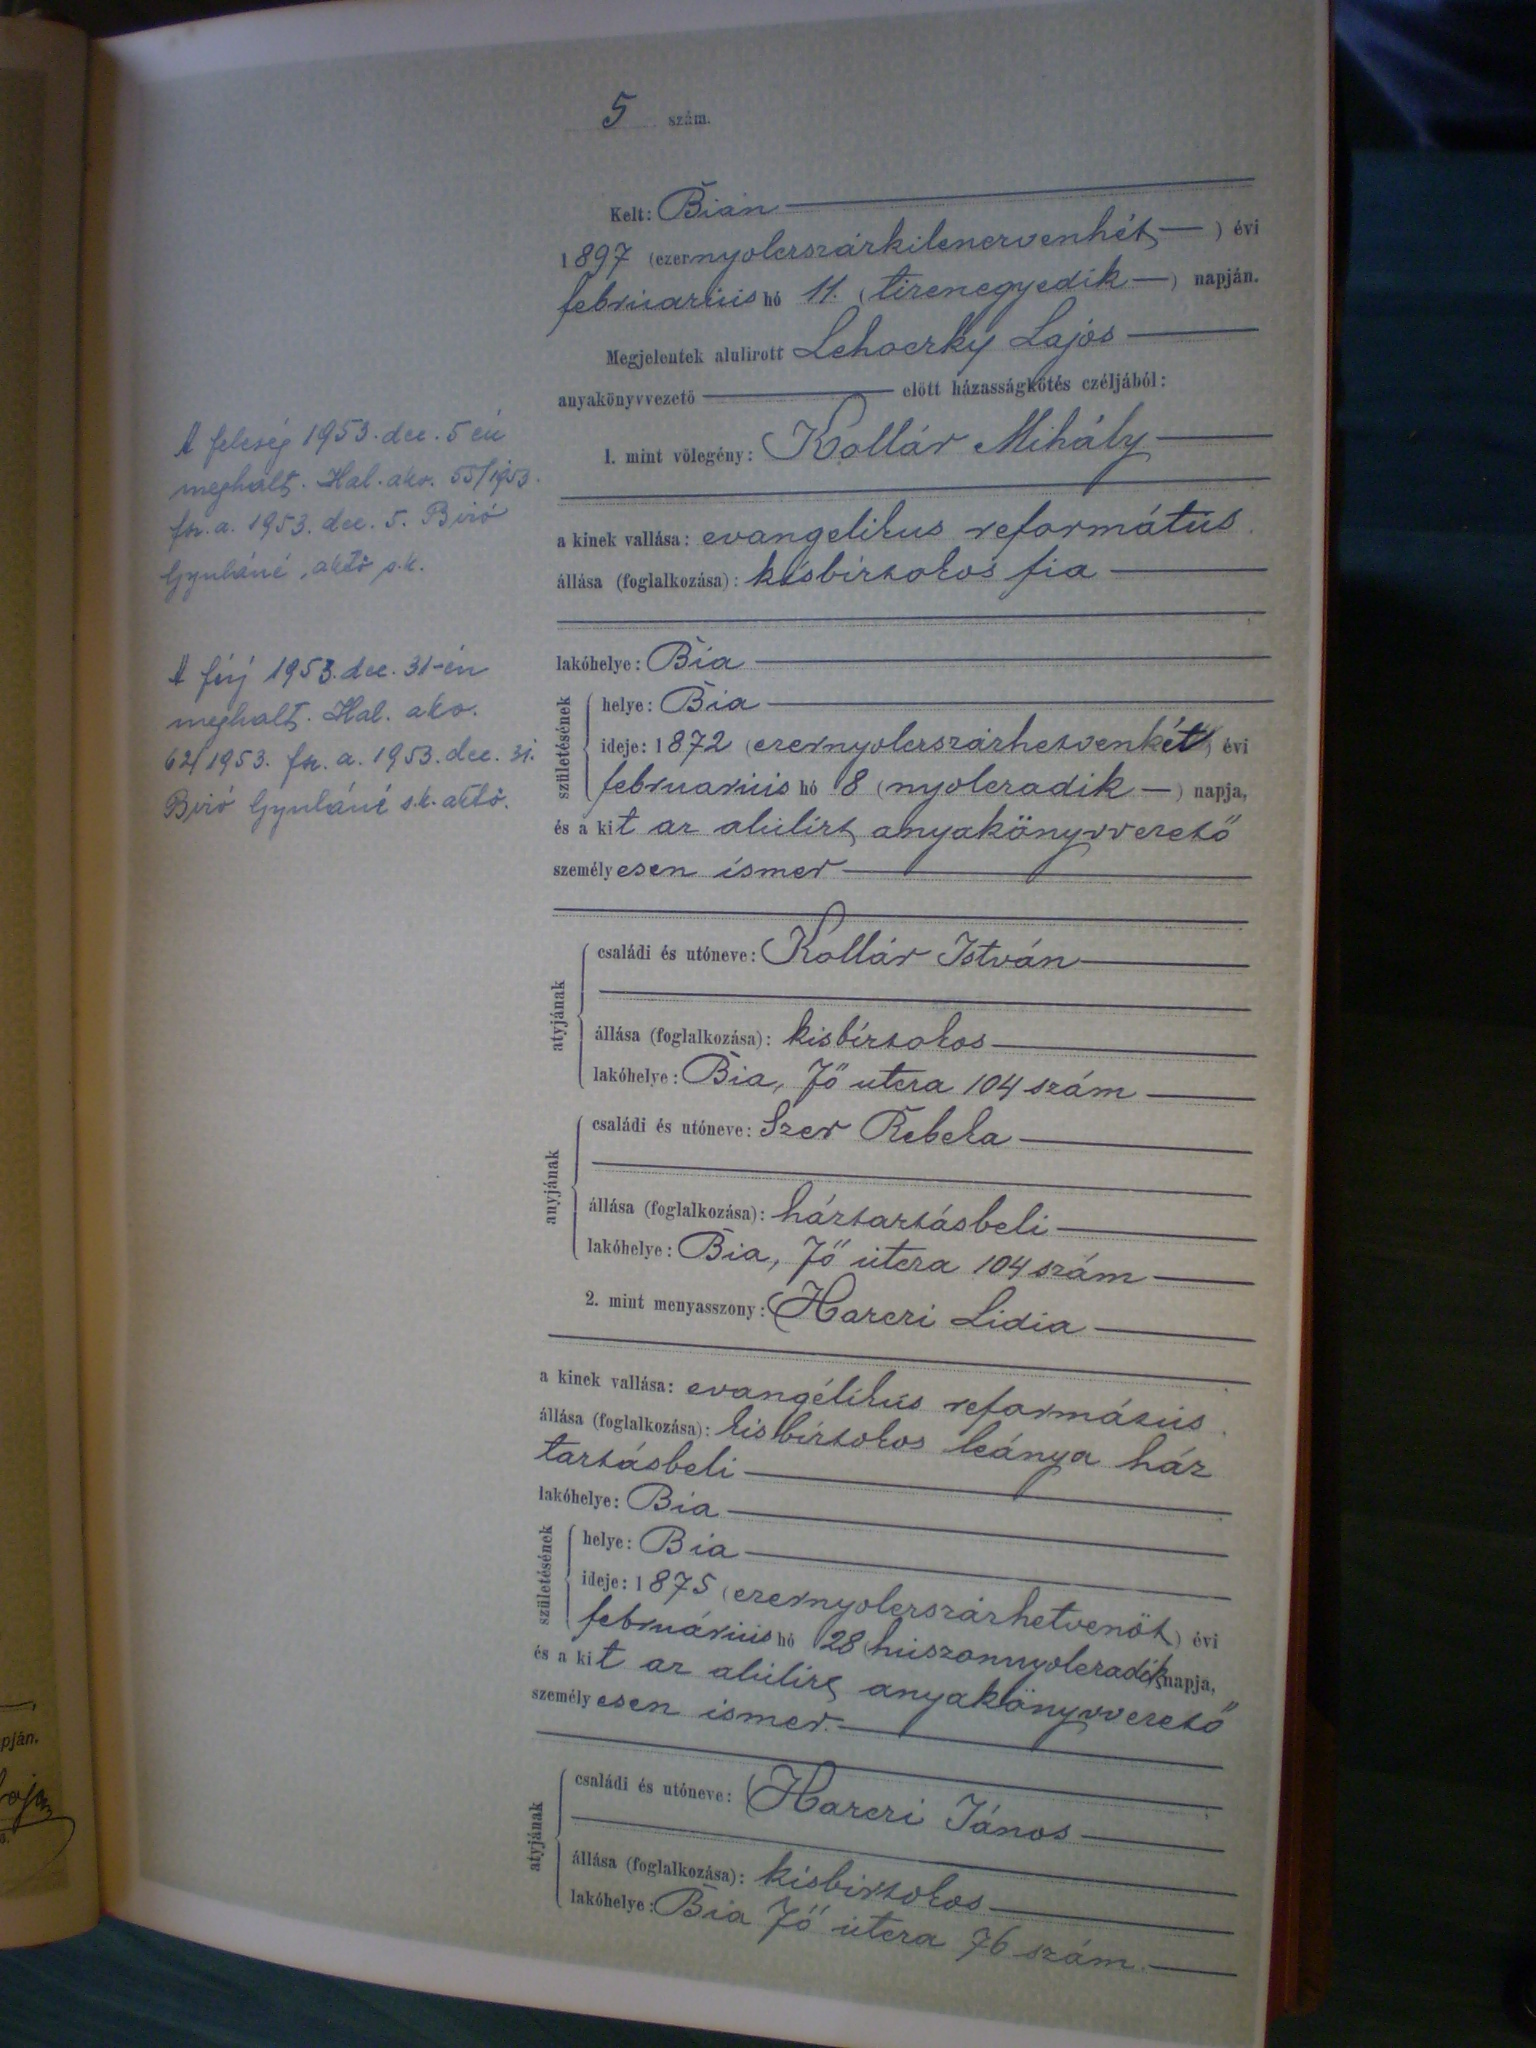 5 szám.
Kelt: Bián
1897 (ezernyolcszázkilencvenhét) évi
februárius hó 11. (tizenegyedik) napján.
Megjelentek alulirott Lehoczky Lajos
anyakönyvvezető előtt házasságkötés czéljából:
1. mint vőlegény: Kollár Mihály
a kinek vallása: evangelikus református.
állása (foglalkozása): kisbirtokos fia
lakóhelye: Bia
születésének
helye: Bia
ideje: 1872 (ezernyolcszázhetvenkét) évi
februarius hó 8 (nyolczadik) napja,
és a kit az alulirt anyakönyvvezető
személyesen ismer
atyjának
családi és utóneve: Kollár István
állása (foglalkozása): kisbirtokos
lakóhelye: Bia, Fő utcza 104 szám
anyjának
családi és utóneve: Szer Rebeka
állása (foglalkozása): háztartásbeli
lakóhelye: Bia, Fő utcza 104 szám
2. mint menyasszony: Harczi Lidia
a kinek vallása: evangélikus református.
állása (foglalkozása): kisbirtokos leánya ház
tartásbeli
lakóhelye: Bia
születésének
helye: Bia
ideje: 1875 (ezernyolcszázhetvenöt) évi
februárius hó 28 (huszonnyolczadik) napja,
és a kit az alulirt anyakönyvvezető
személyesen ismer.
atyjának
családi és utóneve: Harczi János
állása (foglalkozása): kisbirtokos
lakóhelye: Bia Fő utcza 76 szám.
A feleség 1953. dec. 5 én
meghalt. Hal. akv. 55/1953.
fk. a. 1953. dec. 5. Biró
Gyuláné, aktö s.k.
A férj 1953. dec. 31-én
meghalt. Hal. akv.
62/1953. fk. a. 1953. dec. 31.
Biró Gyuláné s.k. aktö.
pján.